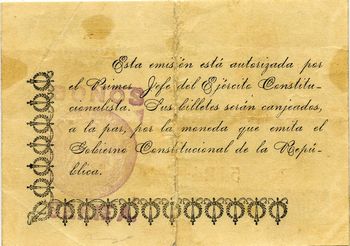 Esta emisión está autorizada por
el Primer Jefe del Ejército Constitu-
cionalista. Sus billetes serán canjeados,
a la par, por la moneda que emita el
Gobierno Constitucional de la Repú-
blica.